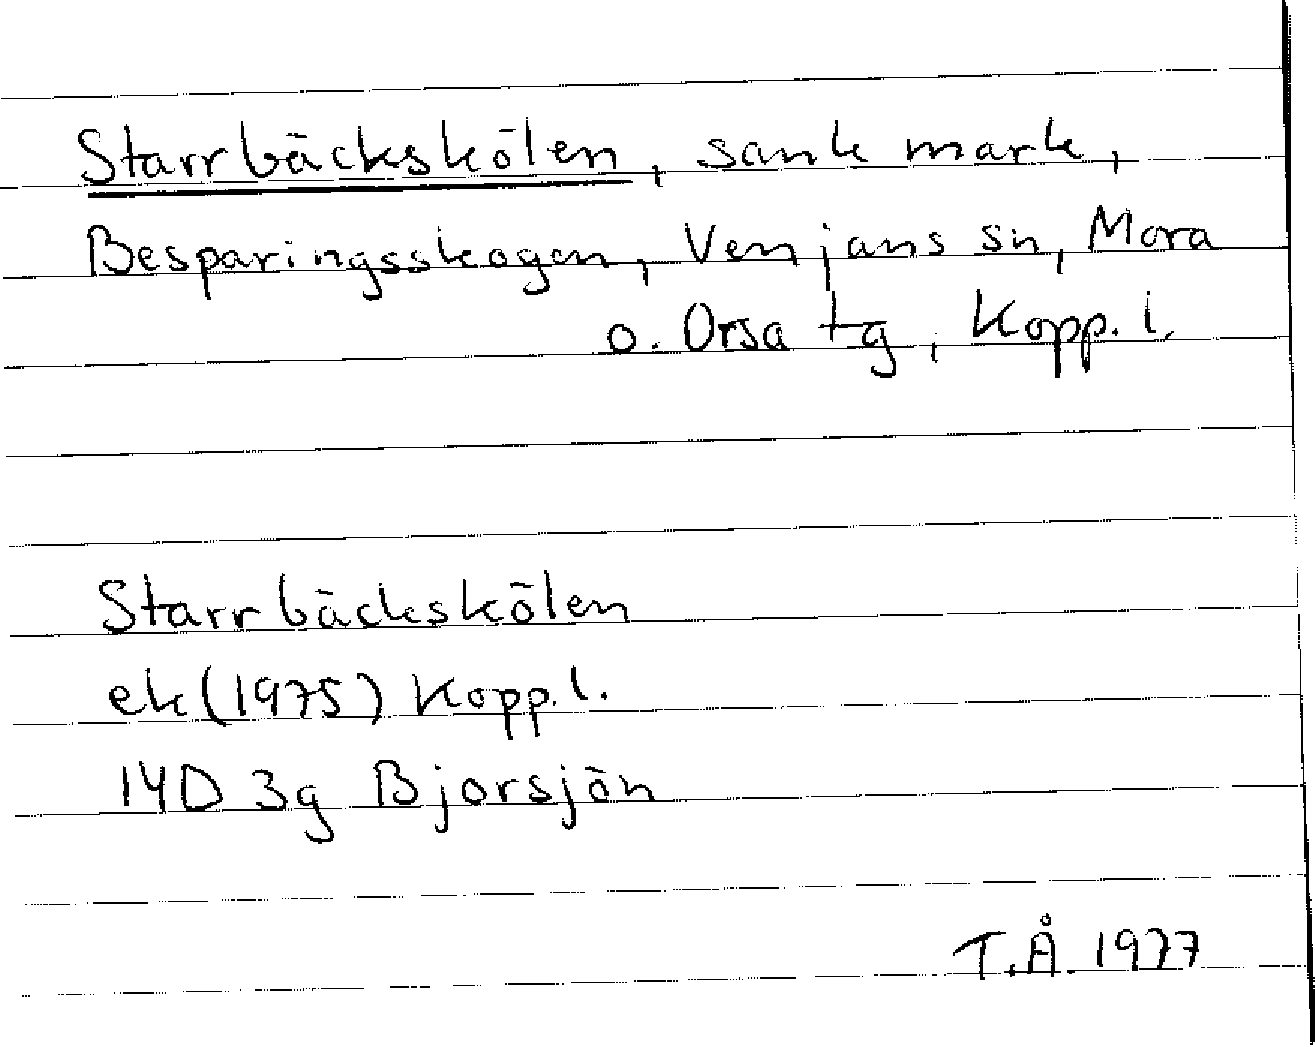 Starrbäckskölen, sank mark,
Besparingsskogen, Venjans sn, Mora
o. Orsa tg, Kopp. l.
Starrbäckskölen
ek (1975) Kopp. l.
14D 3g Bjorsjön
T.Å. 1977